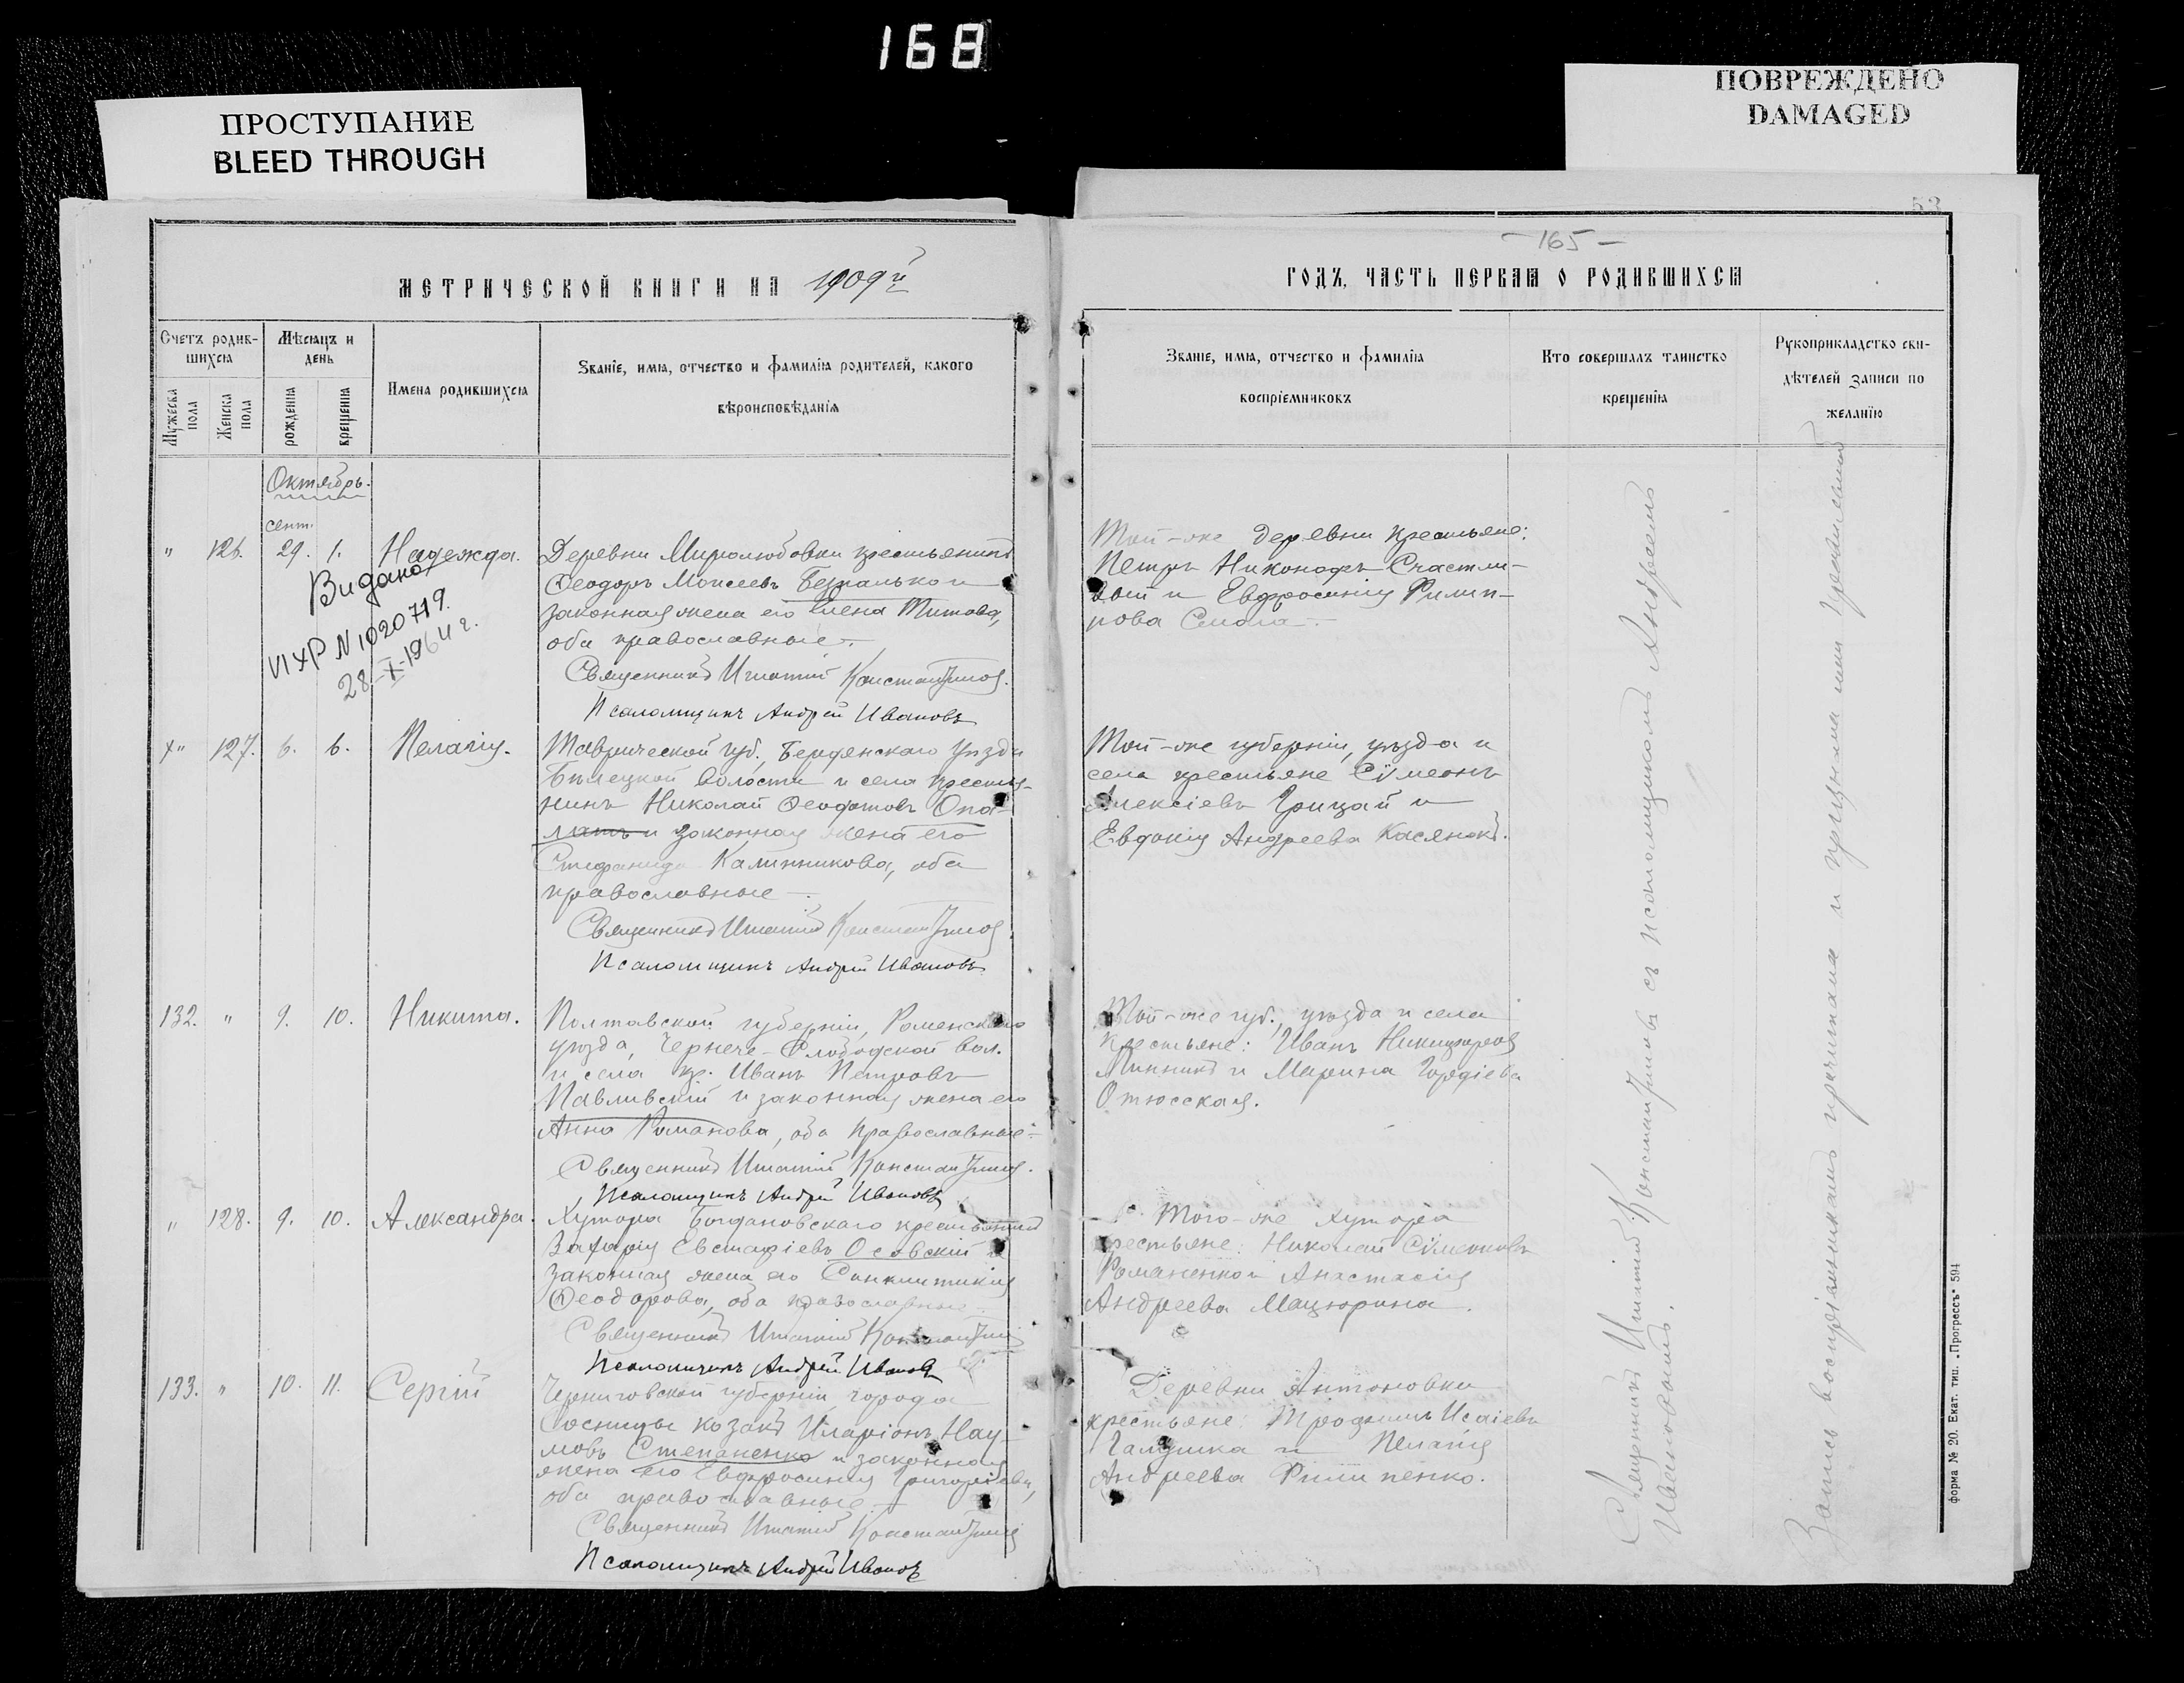 168
ПРОСТУПАНИЕ
BLEED THROUGH
ПОВРЕЖДЕНО
DAMAGED
53
МЕТРИЧЕСКОЙ КНИГИ НА 1909й
Счетъ родив-
шихся
Мѣсяцъ и
день
Имена родившихся
Званіе, имя, отчество и фамилія родителей, какого
вѣроисповѣданія
Мужеска
пола
Женска
пола
рожденія
крещенія
Октябрь.
сент.
" 126. 29. 1. Надежда.
Деревни Миролюбовки крестьянинъ
Ѳеодоръ Моисеевъ Безпалько и
законная жена его Елена Титова,
оба православные.
Священникъ Игнатій Константиновъ.
Псаломщикъ Андрей Ивановъ
Видано
ИХР N 1020719.
28-X-1964 г.
х" 127. 6. 6. Пелагія.
Таврической губ., Бердянскаго уѣзда
волости и села крестья-
нинъ Николай Ѳеодотовъ Опа-
латъ и законная жена его
Стефанида Калинникова, оба
православные.
Священникъ Игнатій Константиновъ.
Псаломщикъ Андрей Ивановъ
132. " 9. 10. Никита.
Полтавской губерніи, Роменскаго
уѣзда, Чернече-Слободской вол.
и села кр. Иванъ Петровъ
Павливскій и законная жена его
Анна Романова, оба православные.
Священникъ Игнатій Константиновъ.
Псаломщикъ Андрей Ивановъ
" 128. 9. 10. Александра.
Хутора Богдановскаго крестьянинъ
Захарія Евстафіевъ Осовскій и
законная жена его Синклитикія
Ѳеодорова, оба православные.
Священникъ Игнатій Константиновъ
Псаломщикъ Андрей Ивановъ
133. " 10. 11. Сергій
Черниговской губерніи, города
Сосницы козакъ Иларіонъ Нау-
мовъ Степаненко и законная
жена его Евфросинія Григоріева,
оба православные.
Священникъ Игнатій Константиновъ
Псаломщикъ Андрей Ивановъ
- 165 -
ГОДЪ, ЧАСТЬ ПЕРВАЯ О РОДИВШИХСЯ
Званіе, имя, отчество и фамилія
воспріемниковъ
Кто совершалъ таинство
крещенія
Рукоприкладство сви-
дѣтелей записи по
желанію
Той-же деревни крестьяне:
Петръ Никоновъ Счастли-
вый и Евфросинія Филип-
пова
Той-же губерніи, уѣзда и
села крестьяне Сѵмеонъ
Алексіевъ Грицай и
Евдокія Андреева Касянокъ.
Той-же губ., уѣзда и села
крестьяне: Иванъ Никифоровъ
Линникъ и Марина Гордіева
Отюсская.
Того-же хутора
крестьяне: Николай Сѵмеоновъ
Романенко и Анастасія
Андреева Мацюрина.
Деревни Антоновки
крестьяне: Трофимъ Исаіевъ
Галушка и Пелагія
Андреева Филипенко.
Священникъ Игнатій Константиновъ съ псаломщикомъ Андреемъ
Ивановымъ.
Запись воспріемникамъ прочитана и
форма № 20. Екат. тип. „Прогрессъ" 594